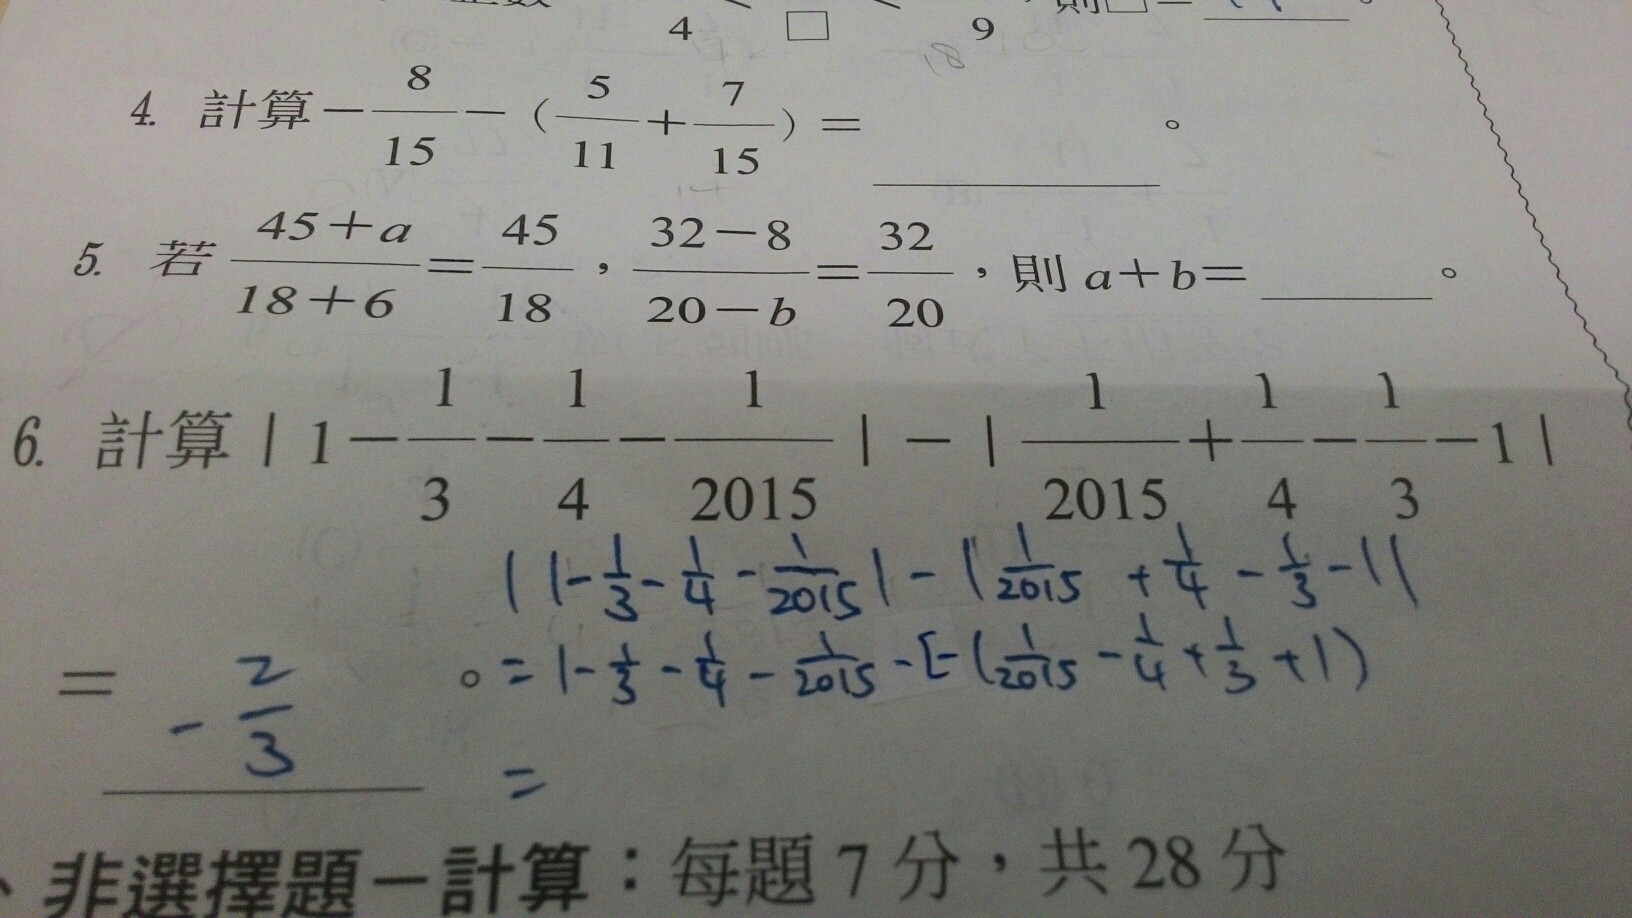 4 □ 9 則□=
4. 計算-8/15-(5/11+7/15)= 。
5. 若 45+a/18+6=45/18,32-8/20-b=32/20,則 a+b= 。
6. 計算|1-1/3-1/4-1/2015|-|1/2015+1/4-1/3-1|
|1-1/3-1/4-1/2015|-|1/2015+1/4-1/3-1|
= -2/3 。=1-1/3-1/4-1/2015-[-(1/2015-1/4+1/3+1)
=
、非選擇題-計算:每題 7 分,共 28 分